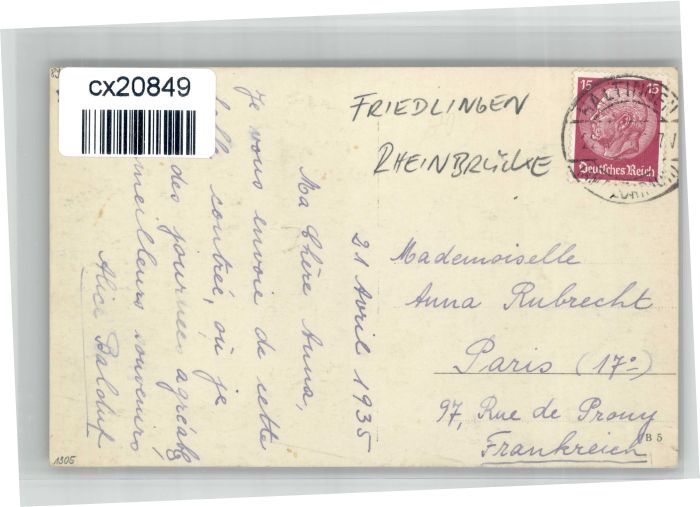 cx20849
FRIEDLINGEN
RHEINBRÜCKE
15 15
Deutsches Reich
HALTINGEN
21 Avril 1935
Ma chère Anna,
Je vous envoie de cette
belle contrée, où je
des journées agréable
meilleurs souvenirs
Alice
Mademoiselle
Anna Rubrecht
Paris (17e)
97, Rue de Prony
Frankreich
B 5
1305